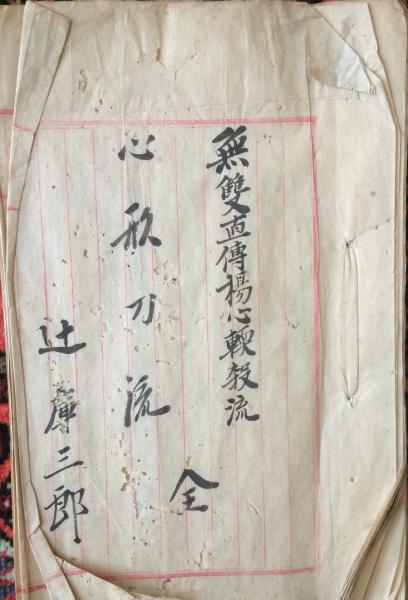 無雙直傳楊心輭殺流
心形刀流
全
辻庫三郎